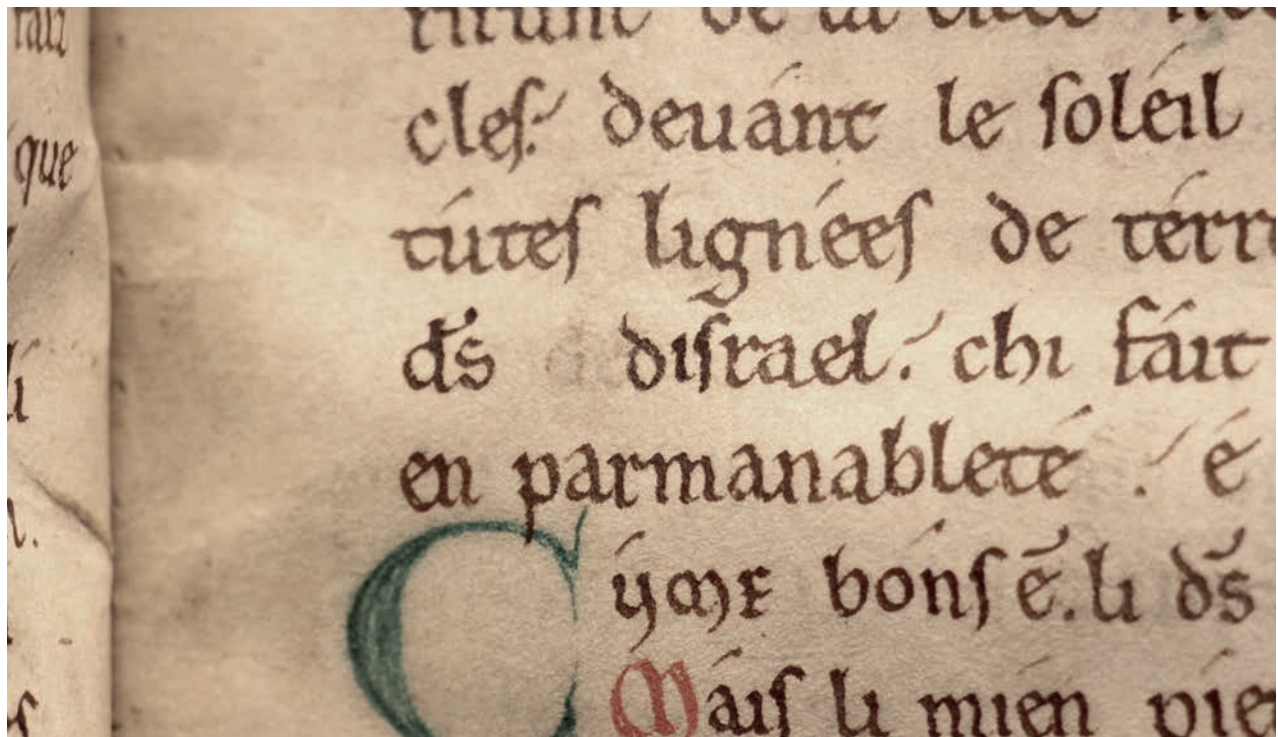 que
cleſ. deuánt le ſoléil
tútes lignéeſ de térre
dſ̄ diſrael. chi fáit
en parmanableté . é
Cume bonſ ē. li dſ̄
Maiſ li mien pie